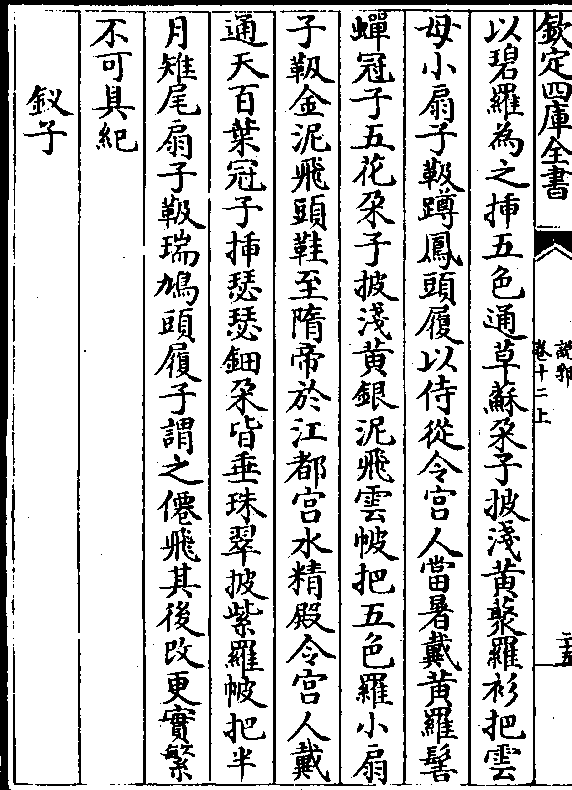 欽定四庫全書
說郛
卷十二上
二十五
以碧羅為之揷五色通草蘇朶子披淺黃藂羅衫把雲
母小扇子靸蹲鳳頭履以侍從令宫人當暑戴黃羅髻
蟬冠子五花朶子披淺黃銀泥飛雲帔把五色羅小扇
子靸金泥飛頭鞋至隋帝於江都宫水精殿令宫人戴
通天百葉冠子揷瑟瑟鈿朶皆垂珠翠披紫羅帔把半
月雉尾扇子靸瑞鳩頭履子謂之僊飛其後改更實繁
不可具紀
釵子